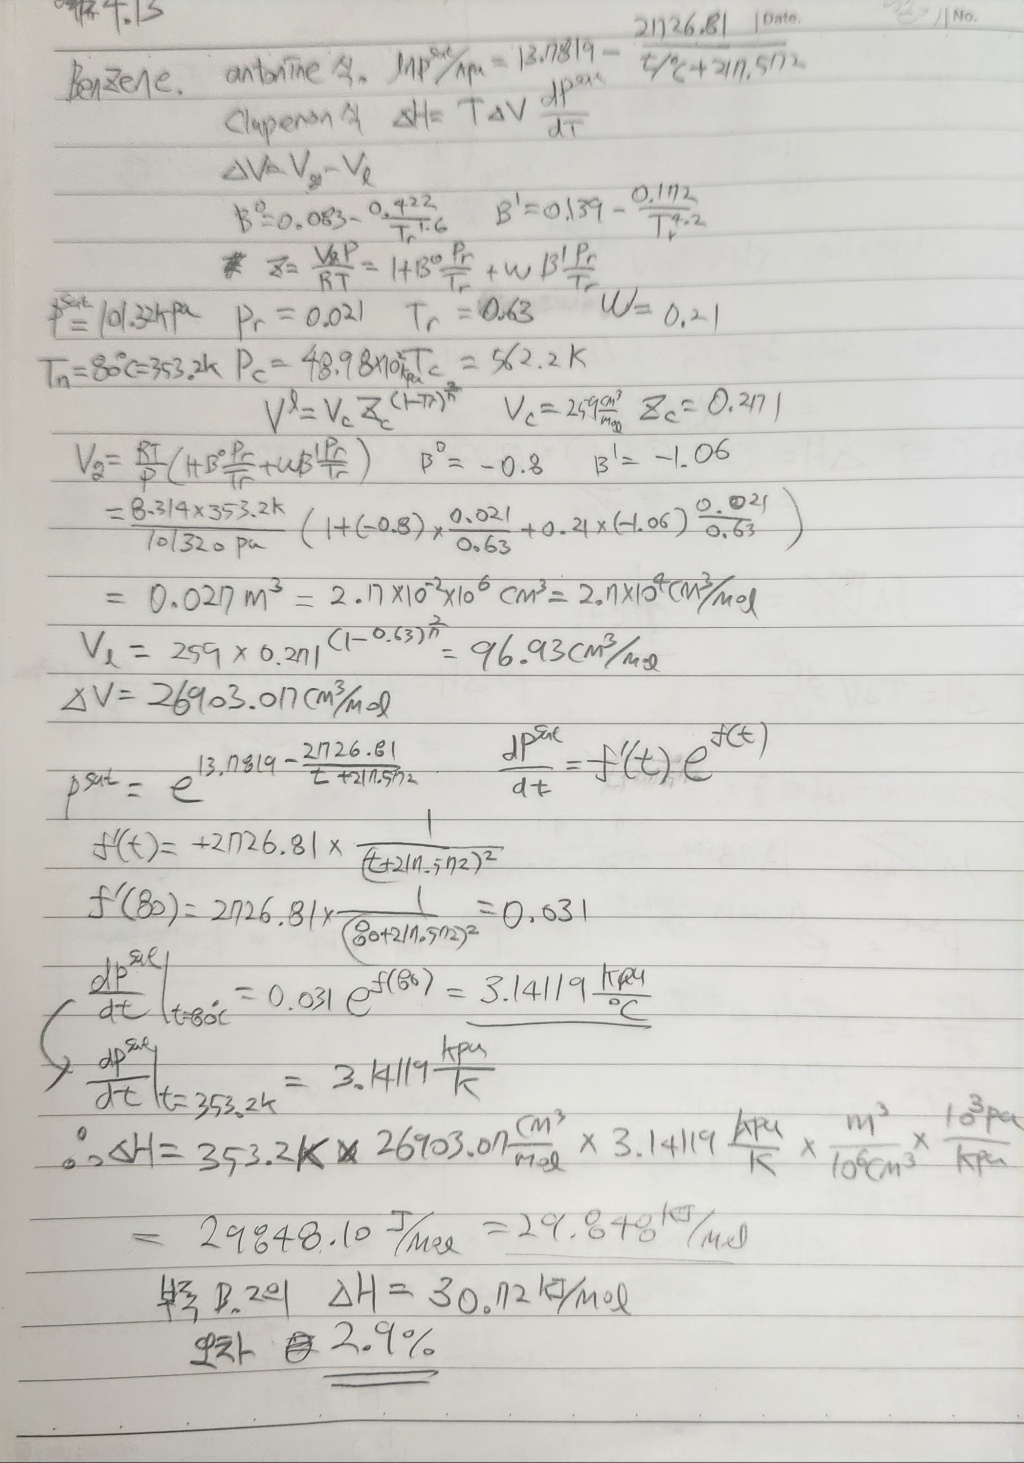 4.13
Date. No.
Benzene. antonine 식. ln P^sat/kpa = 13.7819 - 2726.81/(t/°C+217.572)
Clapeyron 식 ΔH = TΔV dP^sat/dT
ΔV = Vg - Vl
B⁰=0.083 - 0.422/Tr^1.6 B¹=0.139 - 0.172/Tr^4.2
Z = VgP/RT = 1+B⁰ Pr/Tr + ω B¹ Pr/Tr
P^sat = 101.32kpa Pr = 0.021 Tr = 0.63 ω = 0.21
Tn=80°C=353.2K Pc = 48.98×10²kpa Tc = 562.2K
V^l = Vc Zc^(1-Tr)^(2/7) Vc = 259 cm³/mol Zc = 0.271
Vg = RT/P (1+B⁰ Pr/Tr + ωB¹ Pr/Tr) B⁰ = -0.8 B¹ = -1.06
= 8.314×353.2K/101320 pa (1+(-0.8)×0.021/0.63 + 0.21×(-1.06) 0.021/0.63)
= 0.027 m³ = 2.7×10⁻²×10⁶ cm³ = 2.7×10⁴ cm³/mol
Vl = 259 × 0.271^(1-0.63)^(2/7) = 96.93 cm³/mol
ΔV = 26903.07 cm³/mol
P^sat = e^(13.7819 - 2726.81/(t+217.572)) dP^sat/dt = f'(t) e^f(t)
f'(t) = +2726.81 × 1/(t+217.572)²
f'(80) = 2726.81 × 1/(80+217.572)² = 0.031
dP^sat/dt|t=80°C = 0.031 e^f(80) = 3.14119 kpa/°C
dP^sat/dt|t=353.2K = 3.14119 kpa/K
∴ ΔH = 353.2K × 26903.07 cm³/mol × 3.14119 kpa/K × m³/10⁶cm³ × 10³pa/kpa
= 29848.10 J/mol = 29.848 kJ/mol
부록 B.2의 ΔH = 30.72 kJ/mol
오차 2.9%